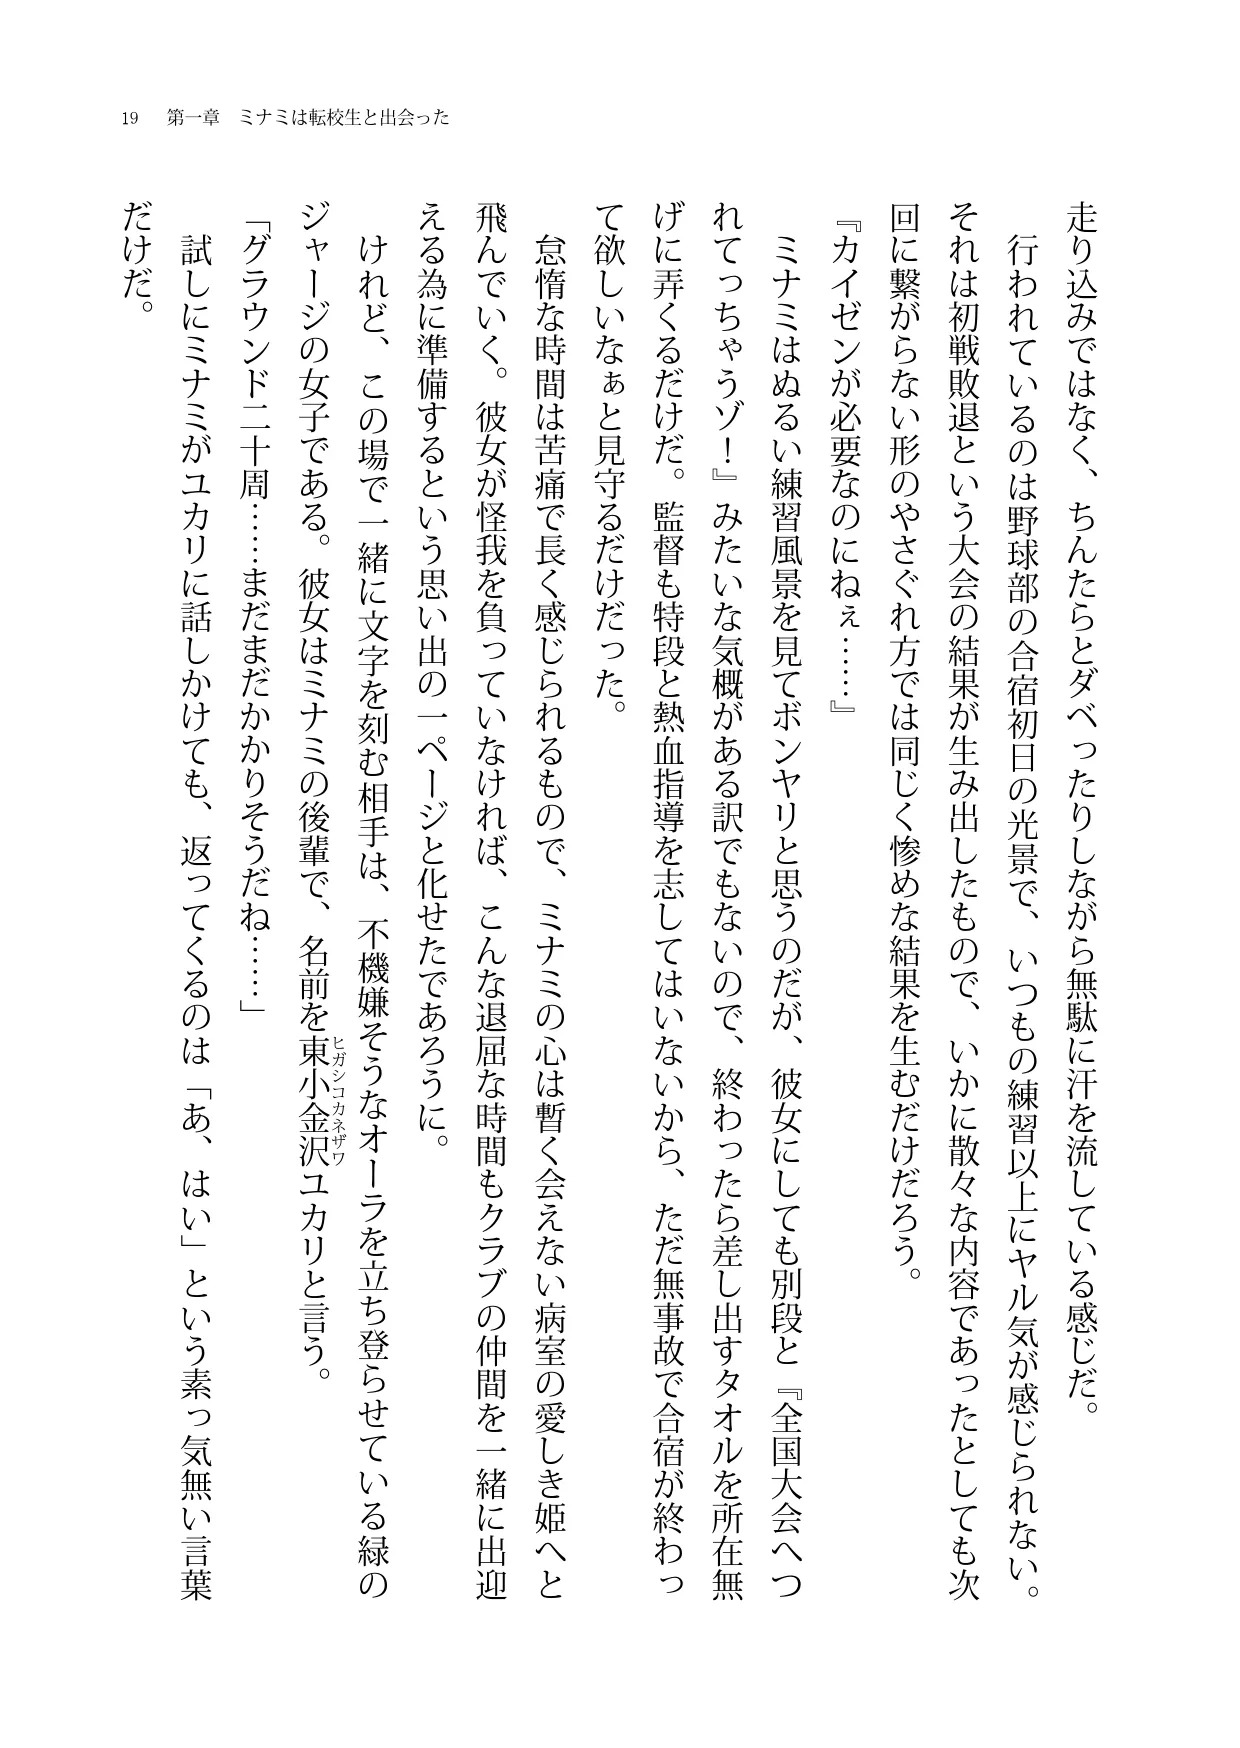 19　第一章　ミナミは転校生と出会った
走り込みではなく、ちんたらとダベったりしながら無駄に汗を流している感じだ。
　行われているのは野球部の合宿初日の光景で、いつもの練習以上にヤル気が感じられない。
それは初戦敗退という大会の結果が生み出したもので、いかに散々な内容であったとしても次
回に繋がらない形のやさぐれ方では同じく惨めな結果を生むだけだろう。
『カイゼンが必要なのにねぇ……』
　ミナミはぬるい練習風景を見てボンヤリと思うのだが、彼女にしても別段と『全国大会へつ
れてっちゃうゾ！』みたいな気概がある訳でもないので、終わったら差し出すタオルを所在無
げに弄くるだけだ。監督も特段と熱血指導を志してはいないから、ただ無事故で合宿が終わっ
て欲しいなぁと見守るだけだった。
　怠惰な時間は苦痛で長く感じられるもので、ミナミの心は暫く会えない病室の愛しき姫へと
飛んでいく。彼女が怪我を負っていなければ、こんな退屈な時間もクラブの仲間を一緒に出迎
える為に準備するという思い出の一ページと化せたであろうに。
　けれど、この場で一緒に文字を刻む相手は、不機嫌そうなオーラを立ち登らせている緑の
ジャージの女子である。彼女はミナミの後輩で、名前を東小金沢ユカリと言う。
ヒガシコカネザワ
「グラウンド二十周……まだまだかかりそうだね……」
　試しにミナミがユカリに話しかけても、返ってくるのは「あ、はい」という素っ気無い言葉
だけだ。